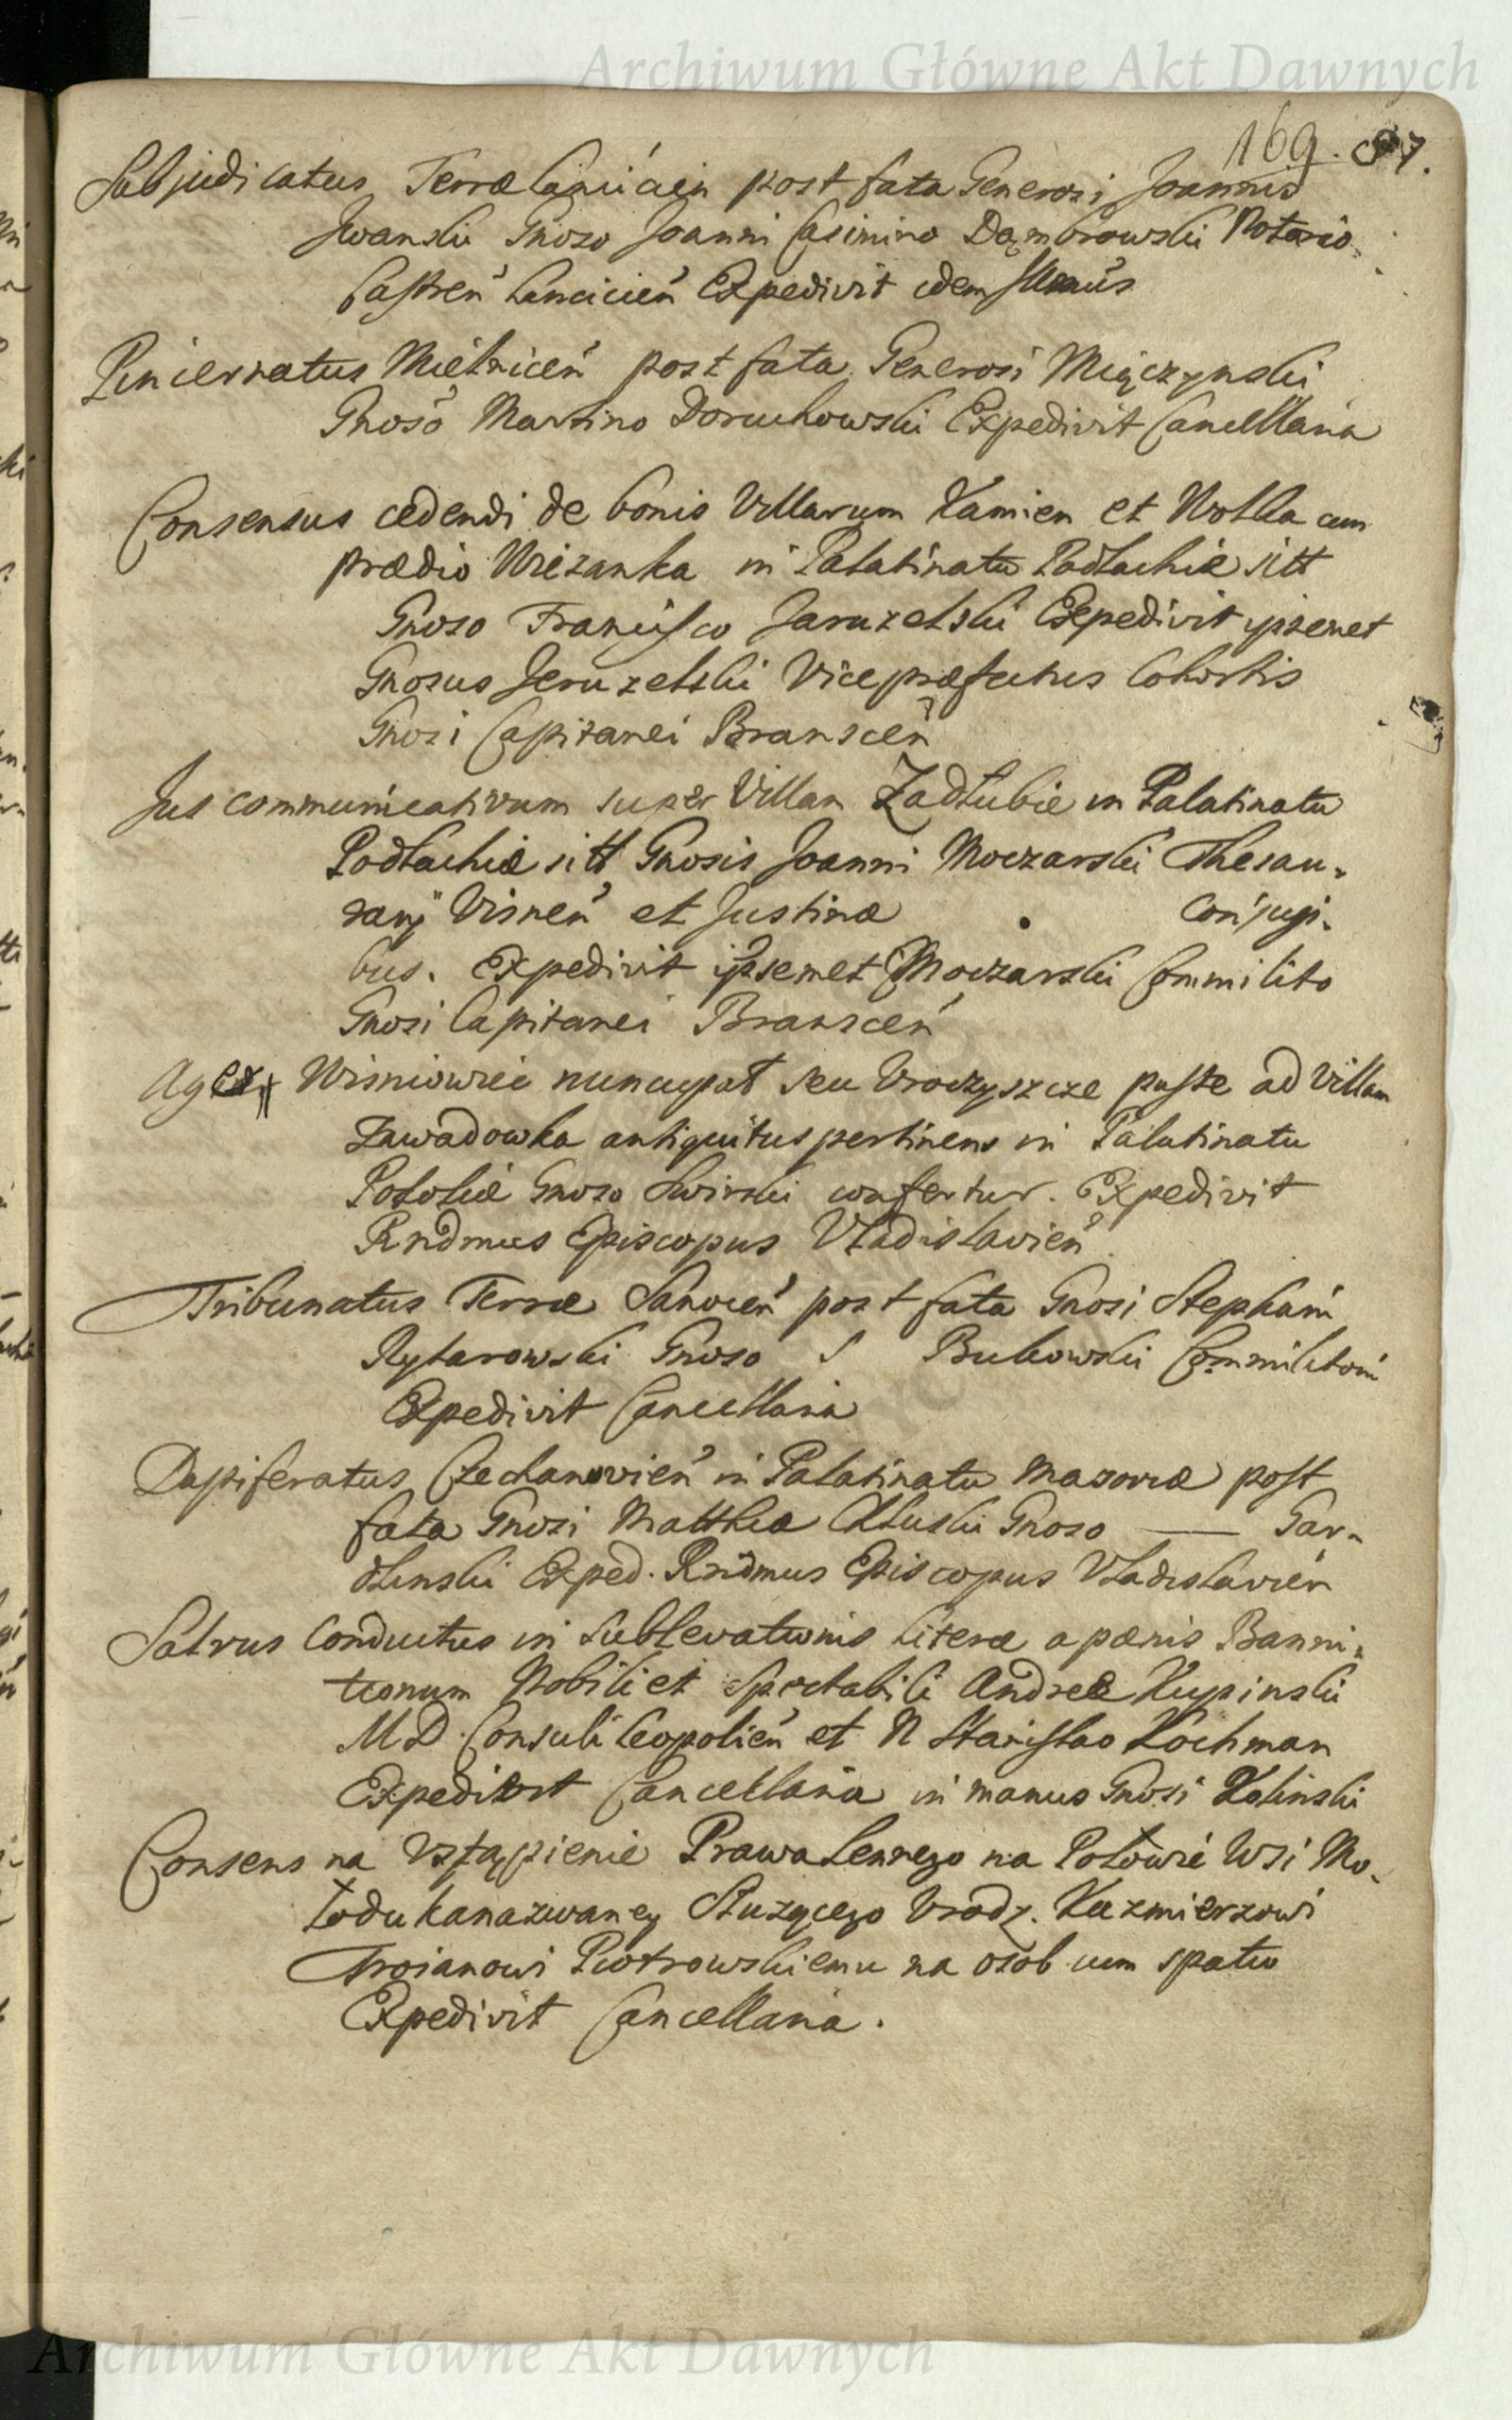 Archiwum Główne Akt Dawnych
169. 87.
Subjudicatus Terræ Lancicień post fata Generosi Joannis
Iwanski Gnoso Joanni Casimiro Dąmbrowski Notario
Castreń Lancicień Expedivit idem Illmus
Pincernatus Mielniceń post fata Generosi Miączynski
Gnoso Martino Doruchowski Expedivit Cancellaria
Consensus cedendi de bonis Villarum Kamien et Wolka cum
prædio in Palatinatu Podlachiæ sitt
Gnoso Francisco Jaruzelski Expedivit ipsemet
Gnosus Jeruzelski Vice præfectus Cohortis
Gnosi Capitanei Bransceń
Jus communicativum super Villam Zadłubie in Palatinatu
Podlachiæ sitt Gnosis Joanni Moczarski Thesau-
rarij Visneń et Justinæ Conjugi-
bus. Expedivit ipsemet Moczarski Commilito
Gnosi Capitanei Bransceń
Ager Wisniowiec nuncupat seu Vroczyszcze puste ad Villam
Zawadowka antiquitus pertinens in Palatinatu
Podoliæ Gnoso Swirski confertur. Expedivit
Rndmus Episcopus Vladislavień
Tribunatus Terræ Sanoceń post fata Gnosi Stephani
Rytarowski Gnoso S Bukowski Commilitoni
Expedivit Cancellaria
Dapiferatus Czechanovień in Palatinatu Mazoviæ post
fata Gnosi Matthiæ Gnoso —— Gar-
dlinski Exped. Rndmus Episcopus Vladislavień
Salvus Conductus in Sublevationis Literæ a pænis Banni-
tionum Nobili et Spectabili Andreæ Kupinski
M D Consuli Leopolień et N Stanislao Kochman
Expedivit Cancellaria in manus Gnosi Kolinski
Consens na Vstąpienie Prawa Lennego na Połowie Wsi Mo-
łoduka nazwaney Słuzącego Vrodz. Kazmierzowi
Troianowi Piotrowskiemu na osob cum spatio
Expedivit Cancellaria.
Archiwum Główne Akt Dawnych